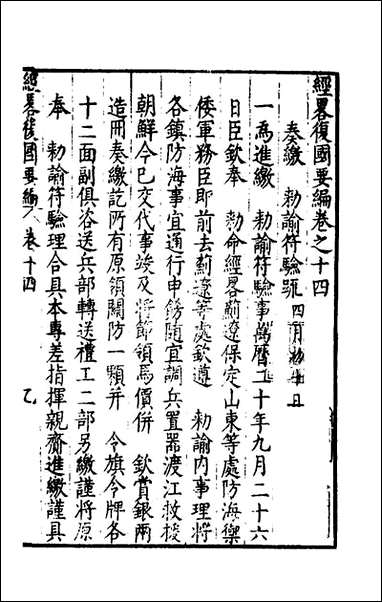 經畧復國要編卷之十四
奏繳 勅諭符驗疏 四月初十日
一爲進繳 勅諭符驗事萬曆二十年九月二十六
日臣欽奉 勅命經畧薊遼保定山東等處防海禦
倭軍務臣即前去薊遼等處欽遵 勅諭內事理將
各鎮防海事宜通行申飭隨宜調兵置器渡江救援
朝鮮今已交代事竣及將節領馬價併 欽賞銀兩
造冊奏繳訖所有原領關防一顆并 令旗令牌各
十二面副俱咨送兵部轉送禮工二部另繳謹將原
奉 勅諭符驗理合具本專差指揮親齎進繳謹具
經畧復國要編 卷十四 乙